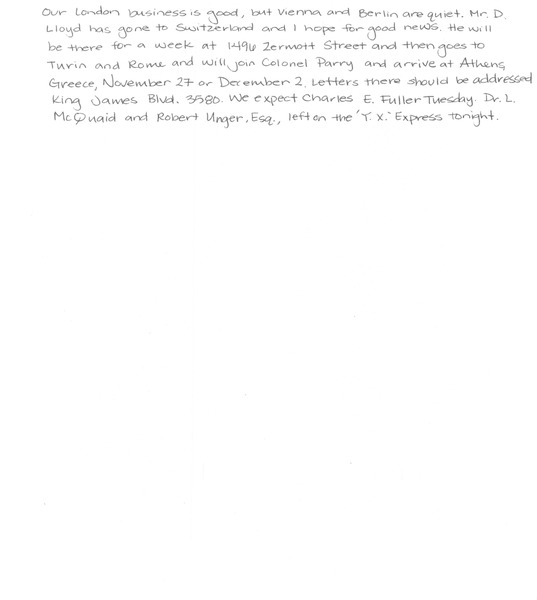 Our London business is good, but Vienna and Berlin are quiet. Mr. D.
Lloyd has gone to Switzerland and I hope for good news. He will
be there for a week at 1496 Zermott Street and then goes to
Turin and Rome and will join Colonel Parry and arrive at Athens,
Greece, November 27 or December 2. Letters there should be addressed
King James Blvd. 3580. We expect Charles E. Fuller Tuesday. Dr. L.
McQuaid and Robert Unger, Esq., left on the 'Y. X.' Express tonight.